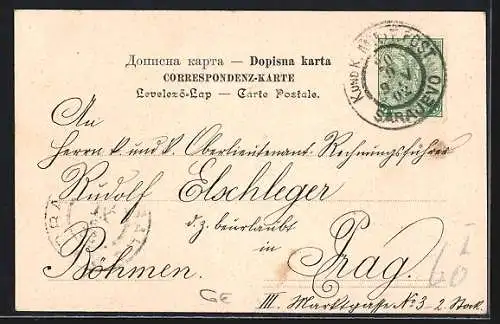 Дописна карта — Dopisna karta
CORRESPONDENZ-KARTE
Levelező-Lap — Carte Postale.
K UND K MILIT. POST
SARAJEVO
An
Herrn k. und k. Oberlieutenant-Rechnungsführer
Rudolf Elschleger
d. z. beurlaubt
in
Böhmen. Prag.
III. Marktgasse No 3 - 2. Stock.